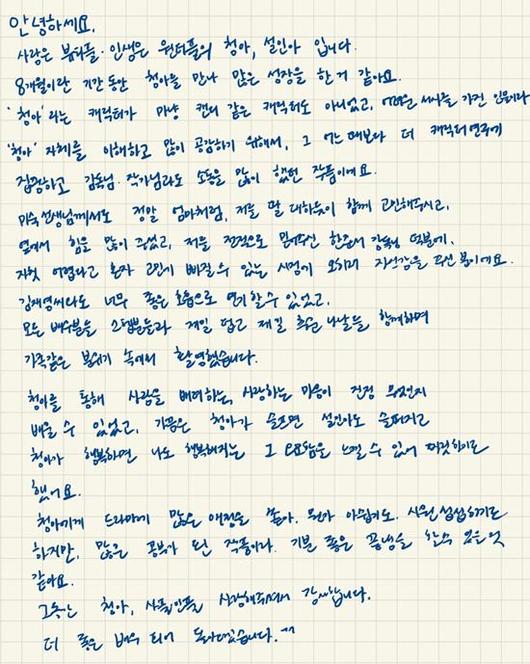 안녕하세요.
사랑은 뷰티풀·인생은 원더풀의 청아, 설인아 입니다.
8개월이란 기간동안 청아를 만나 많은 성장을 한 거 같아요.
'청아'라는 캐릭터가 마냥 캔디 같은 캐릭터도 아니었고, 어려운 서사를 가진 인물이라
'청아' 자체를 이해하고 많이 공감하기 위해서, 그 어느때보다 더 캐릭터연구에
집중하고 감독님·작가님과도 소통을 많이 했던 작품이에요.
미숙선생님께서도 정말 엄마처럼, 저를 딸 대하듯이 함께 고민해주시고,
옆에서 힘을 많이 주셨고, 저를 전적으로 믿어주신 한준서 감독님 덕분에,
자칫 어렵다고 혼자 고민에 빠질 수 있는 시점에 오히려 자신감을 주신 분이에요.
김재영씨와도 너무 좋은 호흡으로 연기할 수 있었고,
모든 배우분들 스텝분들과 제일 덥고 제일 추운 나날들 함께하며
가족같은 분위기 속에서 촬영했습니다.
청아를 통해 사람을 배려하는, 사랑하는 마음이 진정 무엇인지
배울 수 있었고, 가끔은 청아가 슬프면 설인아도 슬퍼지고
청아가 행복하면 나도 행복해지는 그 오묘함을 느낄 수 있어 따뜻하기도
했어요.
청아에게 드라마에 많은 애정을 쏟아. 뭔가 아쉽기도. 시원섭섭하기도
하지만, 많은 공부가 된 작품이라. 기분 좋은 끝냄을 할 수 있을 것
같아요.
그동안 청아, 사풀인풀 사랑해주셔서 감사합니다.
더 좋은 배우 되어 돌아오겠습니다. ^^